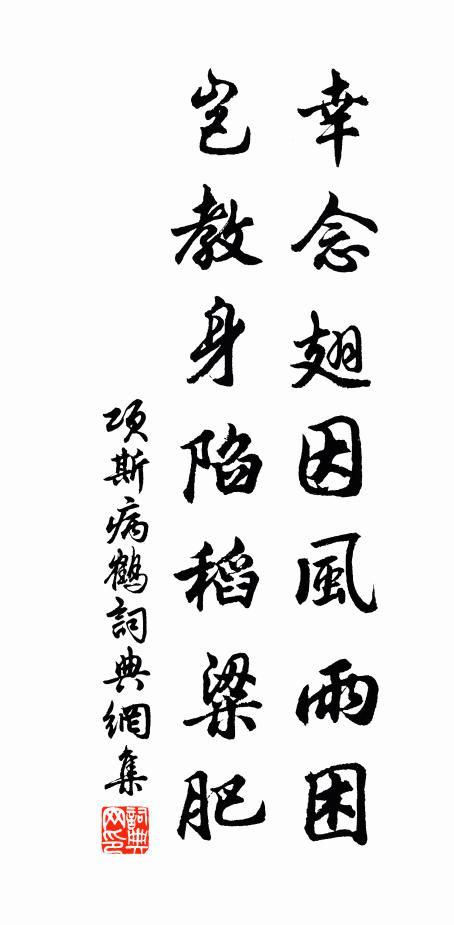 幸念翅因風雨困
豈教身陷稻粱肥
項斯病鶴詞典網集
詞典网印